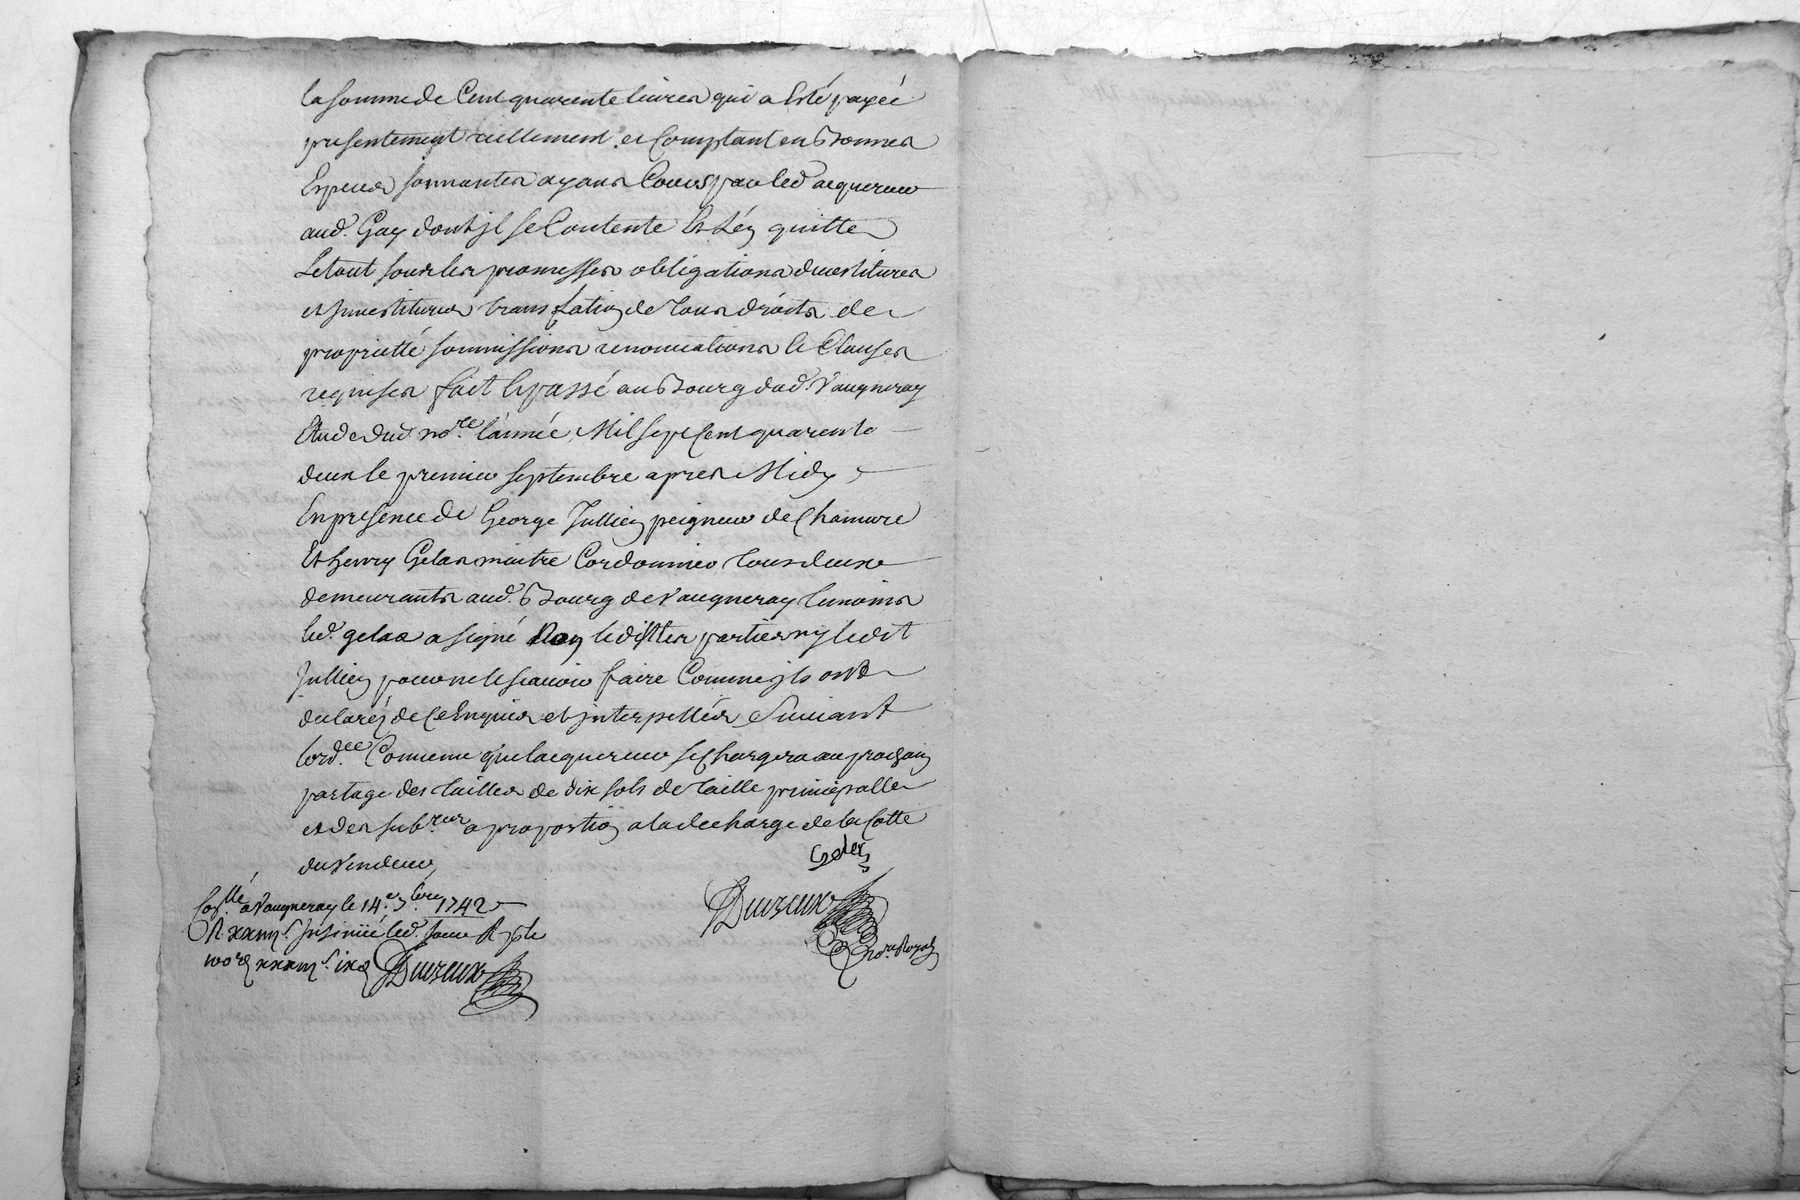 la somme de Cent quarente livres qui a Esté payée
presentement reellement et Comptant en Bonnes
Especes sonnantes ayans Cours par led. acquereur
aud. Gay dont jl se Contente Et L'en quitte
Le tout sous les promesses obligations devestitures
et jnvestitures translation de tous droits de
proprietté soumissions renonciations Et Clauses
requises fait Et passé au Bourg dud. Vaugneray
Etude dud. no.re l'année Mil sept Cent quarente
deux le premier septembre apres Midy
En presence de George Jullien peigneur de Chanvre
Et henry Gelas maitre Cordonnier tous deux
demeurants aud. Bourg de Vaugneray temoins
led. gelas a signé Non lesdittes parties ny ledit
Jullien pour ne le scavoir faire Comme jls ont
declarés de Ce Enquis et jnterpellés Suivant
lord.ce Convenu que lacquereur se Chargera au prochain
partage des tailles de dix sols de taille principalle
et des sub. a proportion a la decharge de la Cotte
du Vendeur
Gelas
Con.llé a Vaugneray le 14.e 7.bre 1742
R jnsinué led. jour R
Duvreux
Duvreux
no.re Royal